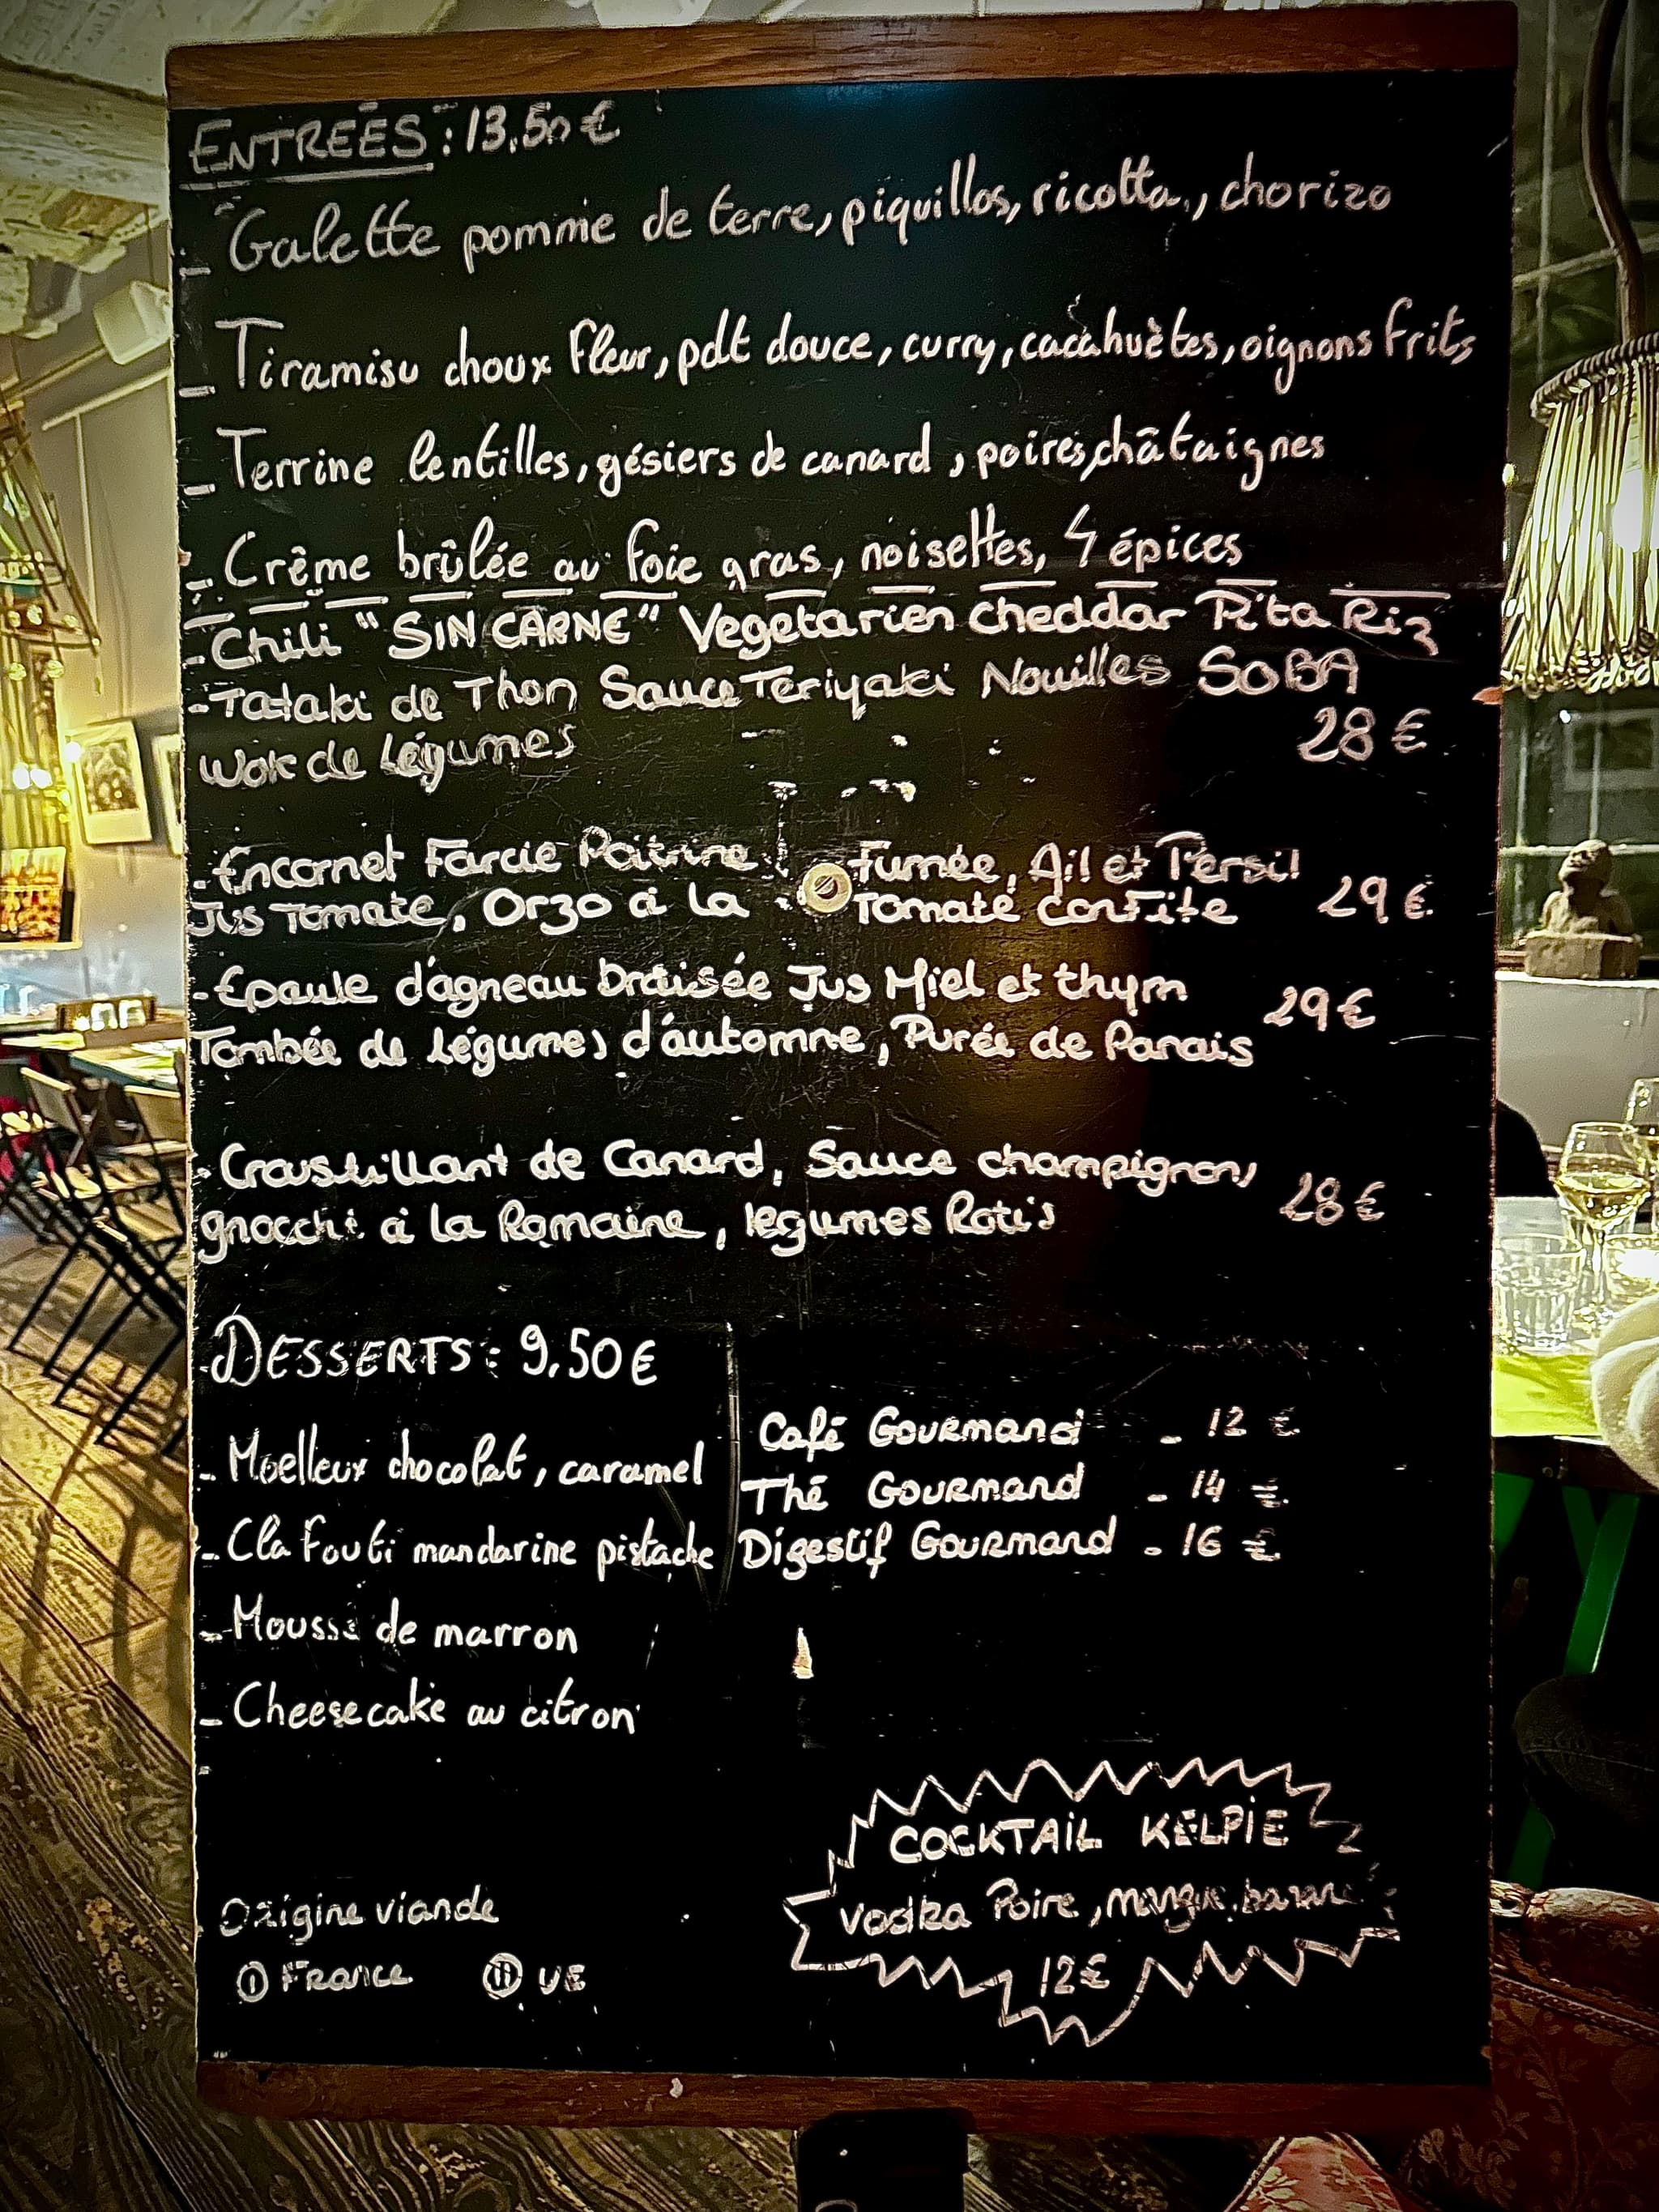 ENTRÉES : 13.50 €
- Galette pomme de terre, piquillos, ricotta, chorizo
- Tiramisu choux fleur, pdt douce, curry, cacahuètes, oignons frits
- Terrine lentilles, gésiers de canard, poires, châtaignes
- Crême brûlée au foie gras, noisettes, 4 épices
- Chili "SIN CARNE" Vegetarien cheddar Pita Riz
- Tataki de Thon Sauce Teriyaki Nouilles SOBA
Wok de légumes 28 €
- Encornet Farcie Poitrine Fumée, Ail et Persil
Jus Tomate, Orzo à la Tomate confite 29 €
- Epaule d'agneau braisée Jus Miel et thym 29 €
Tombée de légumes d'automne, Purée de Panais
- Croustillant de Canard, Sauce champignons 28 €
gnocchi à la Romaine, legumes Rotis
DESSERTS : 9.50 €
- Moelleux chocolat, caramel
- Clafouti mandarine pistache
- Mousse de marron
- Cheesecake au citron
Café Gourmand - 12 €
Thé Gourmand - 14 €
Digestif Gourmand - 16 €
COCKTAIL KELPIE
Vodka Poire, mangue, banane
12€
Origine viande
① France ⑪ UE